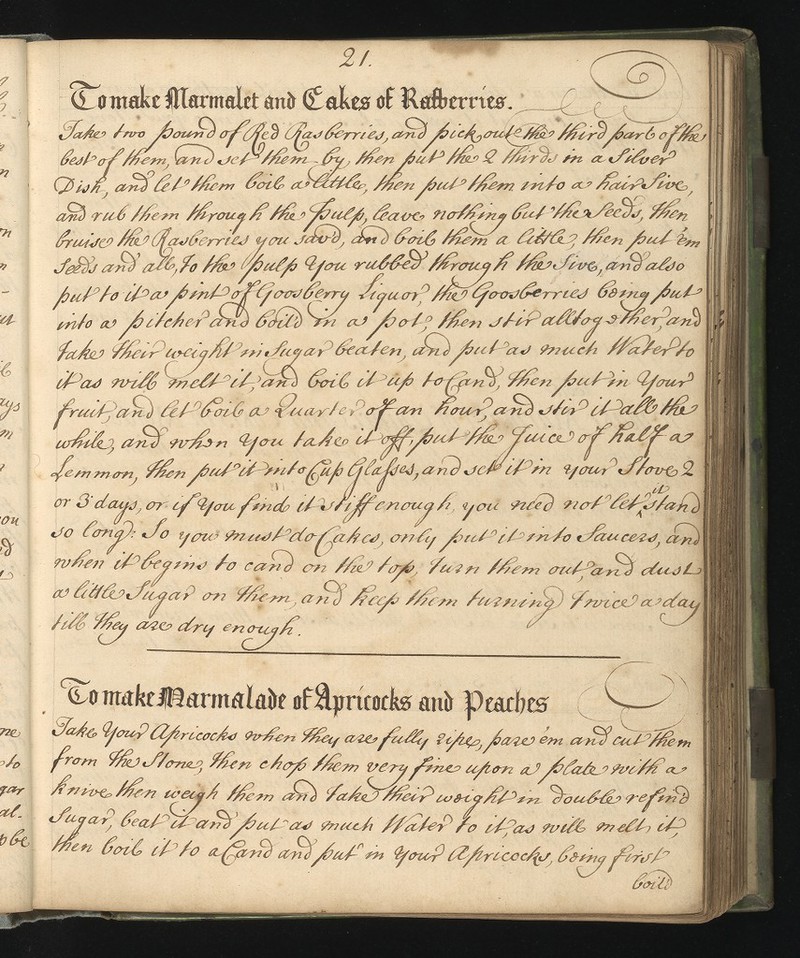 21.
To make Marmalet and Cakes of Rasberries.
Take two pound of Red Rasberries, and pick out the third part of the
best of them, and set them by, then put the 2 thirds in a Silver
Dish, and let them boil a little, then put them into a hair Sive,
and rub them through the Pulp, leave nothing but the Seeds, then
bruise the Rasberries you sav'd, and boil them a little, then put 'em
Seeds and all, to the pulp You rubbed through the Sive, and also
put to it a pint of Goosberry Liquor, the Goosberries being put
into a pitcher and boild in a pot, then stir alltogether, and
take their weight in Sugar beaten, and put as much Water to
it as will melt it, and boil it up to Cand, then put in Your
fruit, and let boil a Quarter of an hour, and stir it all the
while, and when You take it off, put the Juice of half a
Lemmon, then put it into Cup Glasses, and set it in your Stove 2
or 3 days, or if You find it stiff enough, you need not let it stand
so long: So you must do Cakes, only put it into Saucers, and
when it begins to cand on the top, turn them out, and dust
a little Sugar on them, and keep them turning twice a day
till they are dry enough.
To make Marmalade of Apricocks and Peaches
Take Your Apricocks when they are fully ripe, pare 'em and cut them
from the Stone, then chop them very fine upon a plate with a
knive then weigh them and take their weight in double refin'd
Sugar, beat it and put as much Water to it, as will melt it,
then boil it to a Cand and put in Your Apricocks, being first
boild